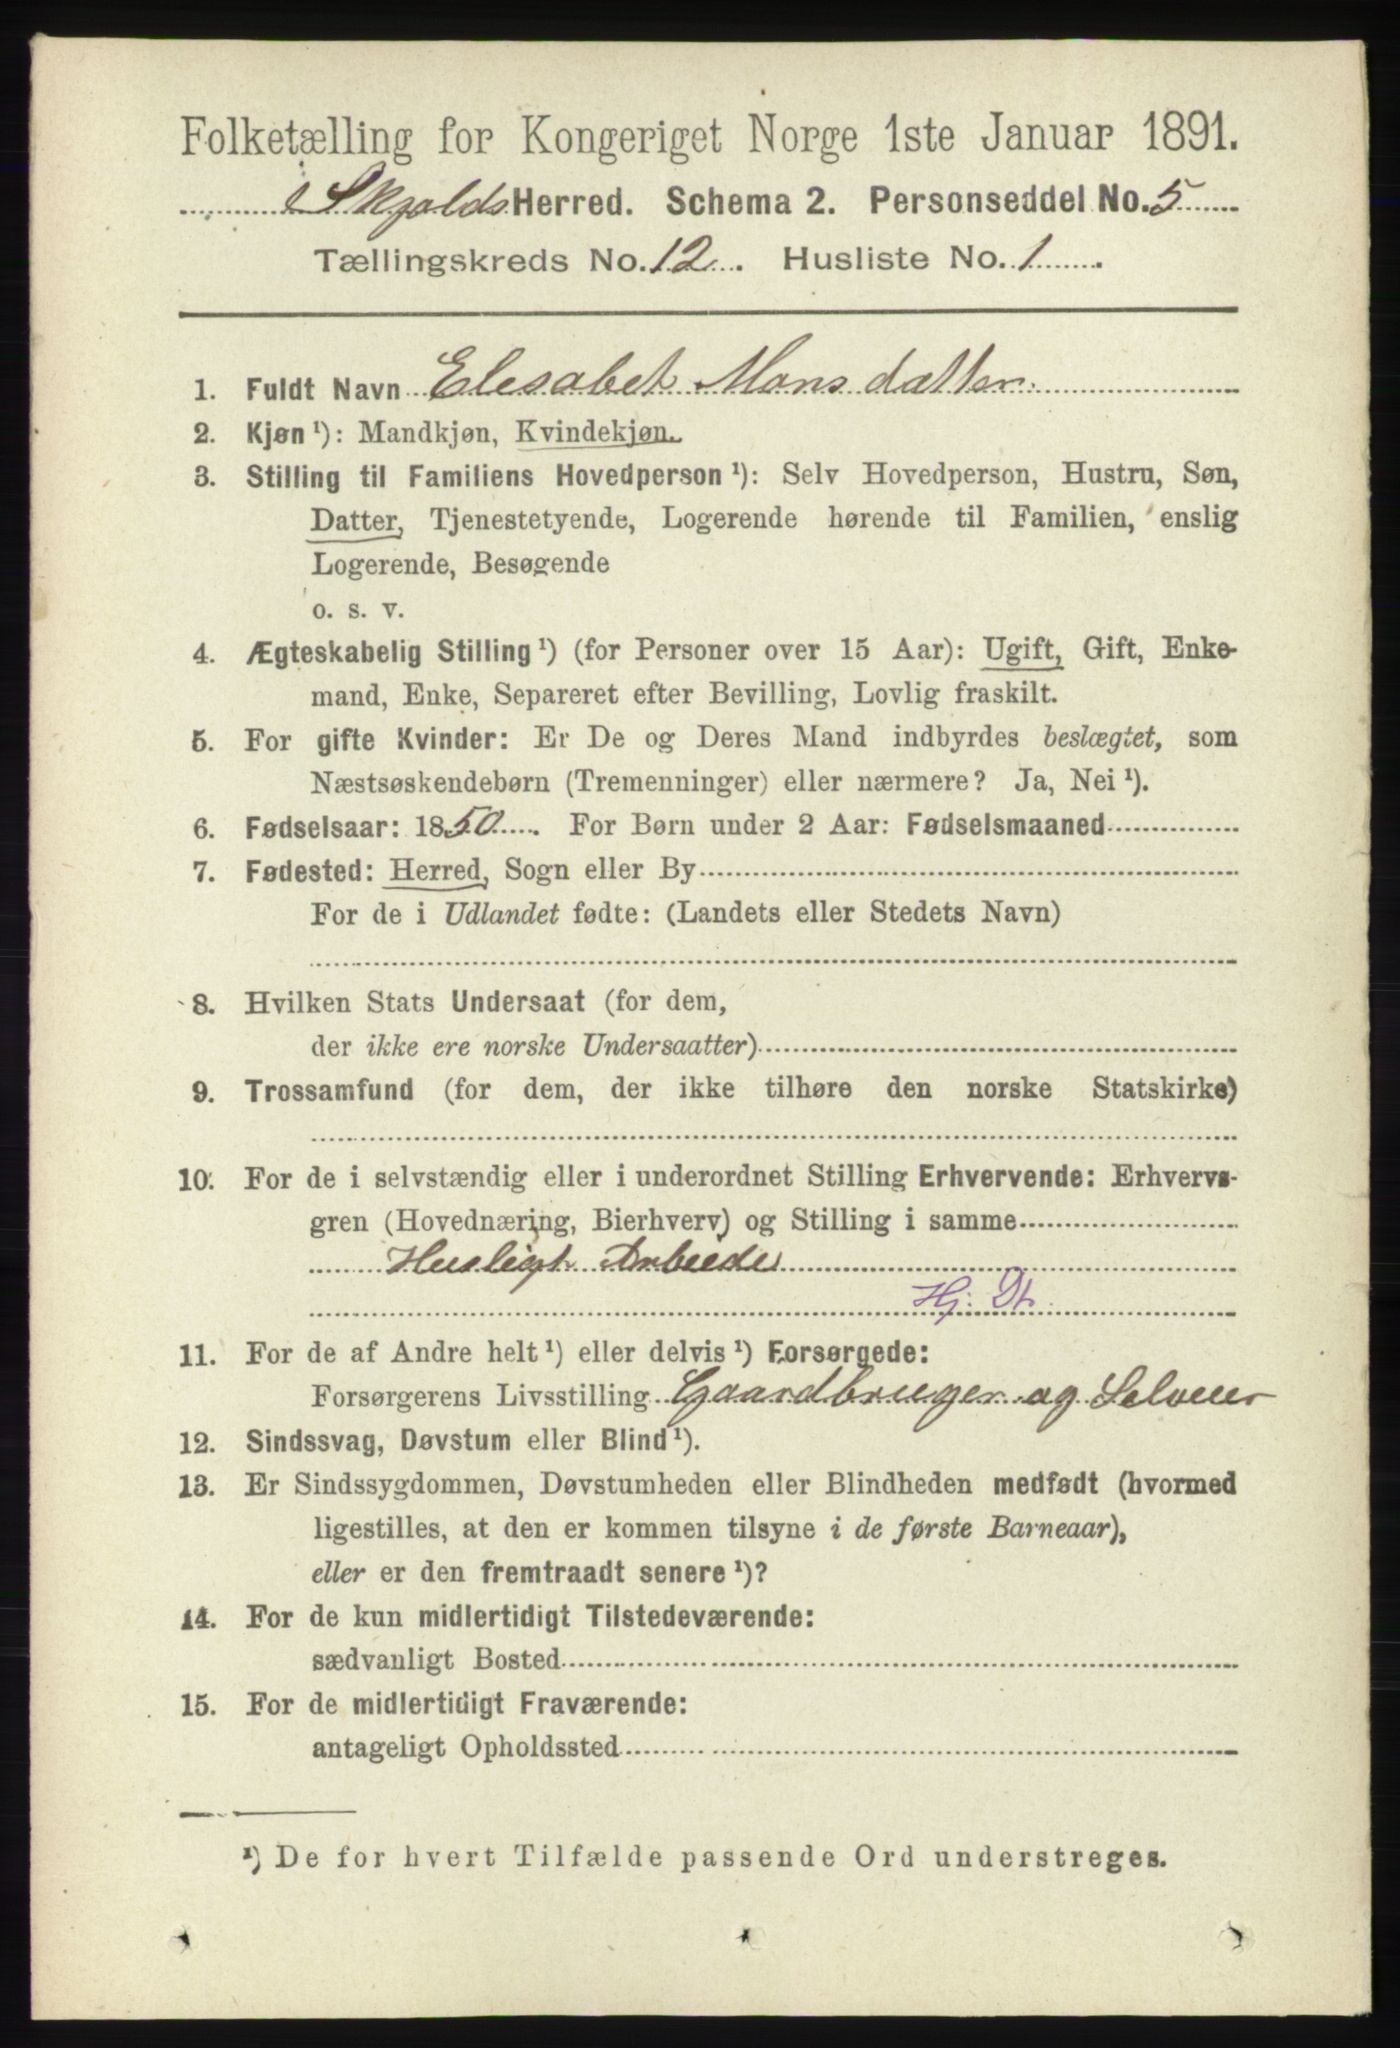 Folketælling for Kongeriget Norge 1ste Januar 1891.
Skjolds Herred. Schema 2. Personseddel No. 5
Tællingskreds No. 12. Husliste No. 1
1. Fuldt Navn Elesabet Monsdatter
2. Kjøn ¹): Mandkjøn, Kvindekjøn.
3. Stilling til Familiens Hovedperson ¹): Selv Hovedperson, Hustru, Søn,
Datter, Tjenestetyende, Logerende hørende til Familien, enslig
Logerende, Besøgende
o. s. v.
4. Ægteskabelig Stilling ¹) (for Personer over 15 Aar): Ugift, Gift, Enke-
mand, Enke, Separeret efter Bevilling, Lovlig fraskilt.
5. For gifte Kvinder: Er De og Deres Mand indbyrdes beslægtet, som
Næstsøskendebørn (Tremenninger) eller nærmere? Ja, Nei ¹).
6. Fødselsaar: 1850. For Børn under 2 Aar: Fødselsmaaned
7. Fødested: Herred, Sogn eller By
For de i Udlandet fødte: (Landets eller Stedets Navn)
8. Hvilken Stats Undersaat (for dem,
der ikke ere norske Undersaatter)
9. Trossamfund (for dem, der ikke tilhøre den norske Statskirke)
10. For de i selvstændig eller i underordnet Stilling Erhvervende: Erhvervs-
gren (Hovednæring, Bierhverv) og Stilling i samme
Husligt Arbeede
Hj. Dt.
11. For de af Andre helt ¹) eller delvis ¹) Forsørgede:
Forsørgerens Livsstilling Gaardbruger og Selveier
12. Sindssvag, Døvstum eller Blind ¹).
13. Er Sindssygdommen, Døvstumheden eller Blindheden medfødt (hvormed
ligestilles, at den er kommen tilsyne i de første Barneaar),
eller er den fremtraadt senere ¹)?
14. For de kun midlertidigt Tilstedeværende:
sædvanligt Bosted
15. For de midlertidigt Fraværende:
antageligt Opholdssted
¹) De for hvert Tilfælde passende Ord understreges.